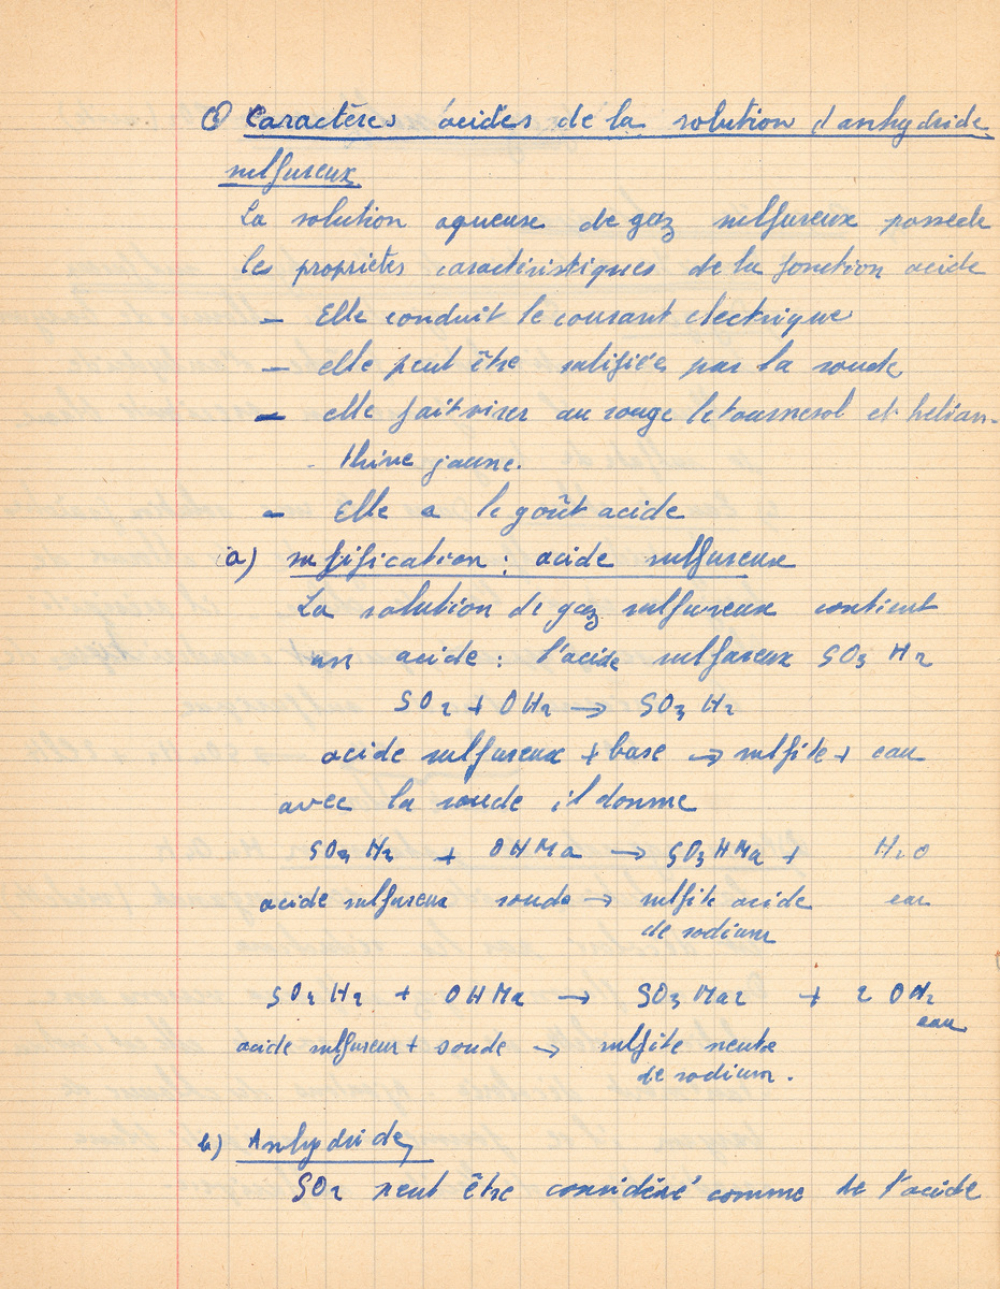 C) Caractères acides de la solution d'anhydride
sulfureux
La solution aqueuse de gaz sulfureux possède
les propriétés caractéristiques de la fonction acide
- Elle conduit le courant electrique
- elle peut être salifiée par la soude
- elle fait virer au rouge le tournesol et hélian-
thine jaune.
- Elle a le goût acide
a) : acide sulfureux
La solution de gaz sulfureux contient
un acide : l'acide sulfureux SO3 H2
SO2 + OH2 → SO3 H2
acide sulfureux + base → sulfite + eau
avec la soude il donne
SO3 H2 + OHNa → SO3HNa + H2O
acide sulfureux soude → sulfite acide eau
de sodium
SO3 H2 + OHNa → SO3Na2 + 2 OH2
eau
acide sulfureux + soude → sulfite neutre
de sodium.
b) Anhydride
SO2 peut être considéré comme de l'acide